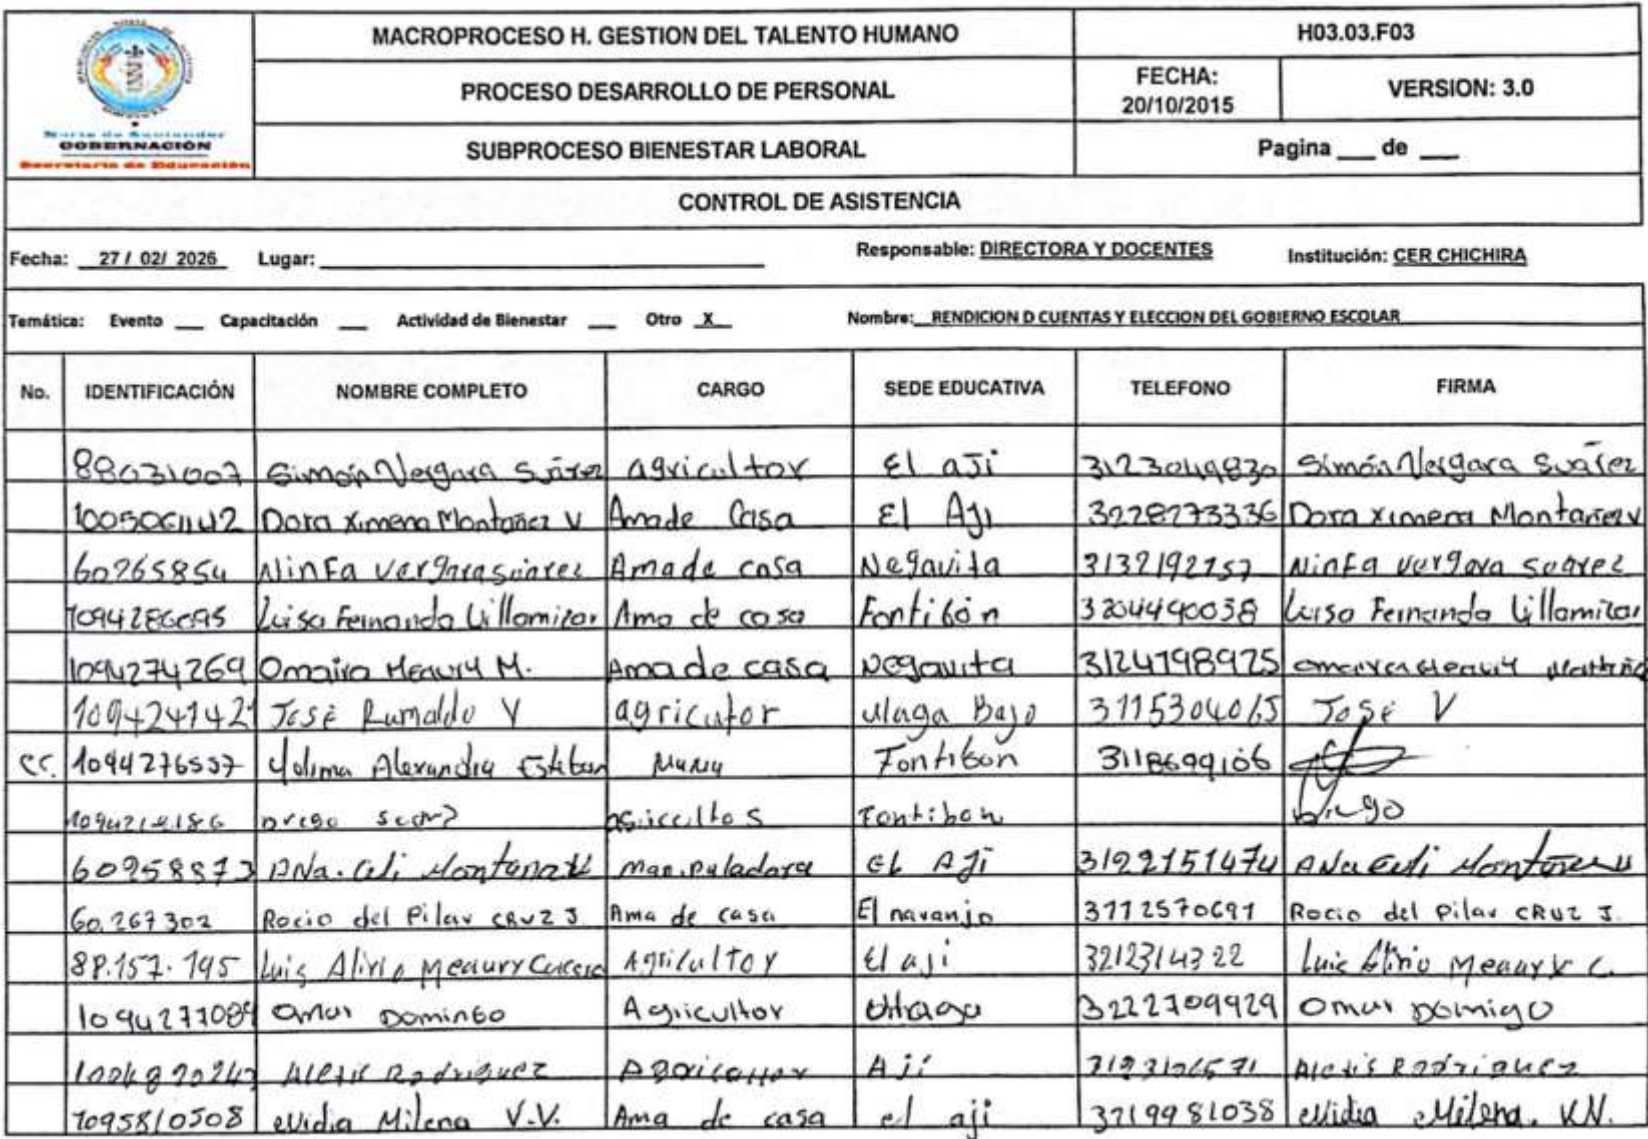 MACROPROCESO H. GESTION DEL TALENTO HUMANO H03.03.F03
PROCESO DESARROLLO DE PERSONAL FECHA: 20/10/2015 VERSION: 3.0
Norte de Santander
GOBERNACIÓN
Secretaría de Educación
SUBPROCESO BIENESTAR LABORAL Pagina ___ de ___
CONTROL DE ASISTENCIA
Fecha: 27 / 02/ 2026 Lugar: Responsable: DIRECTORA Y DOCENTES Institución: CER CHICHIRA
Temática: Evento ___ Capacitación ___ Actividad de Bienestar ___ Otro X Nombre: RENDICION D CUENTAS Y ELECCION DEL GOBIERNO ESCOLAR
No. IDENTIFICACIÓN NOMBRE COMPLETO CARGO SEDE EDUCATIVA TELEFONO FIRMA
88031007 Simón Vergara Suárez agricultor El ají 3123049830 Simón Vergara Suárez
Dora Ximena Montañez V Ama de Casa El Ají 3228273336 Dora Ximena Montañez V
60265854 Ninfa Vergara suarez Ama de casa Negavita 3132192757 Ninfa Vergara suarez
Luisa Fernanda Villamizar Ama de casa Fontibón 3204490038 Luisa Fernanda Villamizar
1094274269 Omaira Meaury M. Ama de casa Negavita 3124798925
1094241421 José Rumaldo V agricutor ulaga Bajo 3115304065 José V
cc. 1094276537 Yolima Alexandra Esteban Fontibon 3118699106
Diego Fontibon Diego
60258873 ANa. Celi Montañez manipuladora EL Ají 3122151474 ANa Celi Montañez
60.267302 Rocio del Pilar CRUZ J Ama de casa El naranjo 3112570691 Rocio del Pilar CRUZ J.
88.157.195 Luis Alirio Meaury Agricultor El ají 3212314322 Luis Alirio Meaury C.
1094277089 Omar DominGo Agricultor 3222709929 Omar Domigo
Alexis Rodriguez Ají Alexis Rodriguez
1095810508 Nidia Milena V.V. Ama de casa el ají 3219981038 Nidia Milena. V.V.